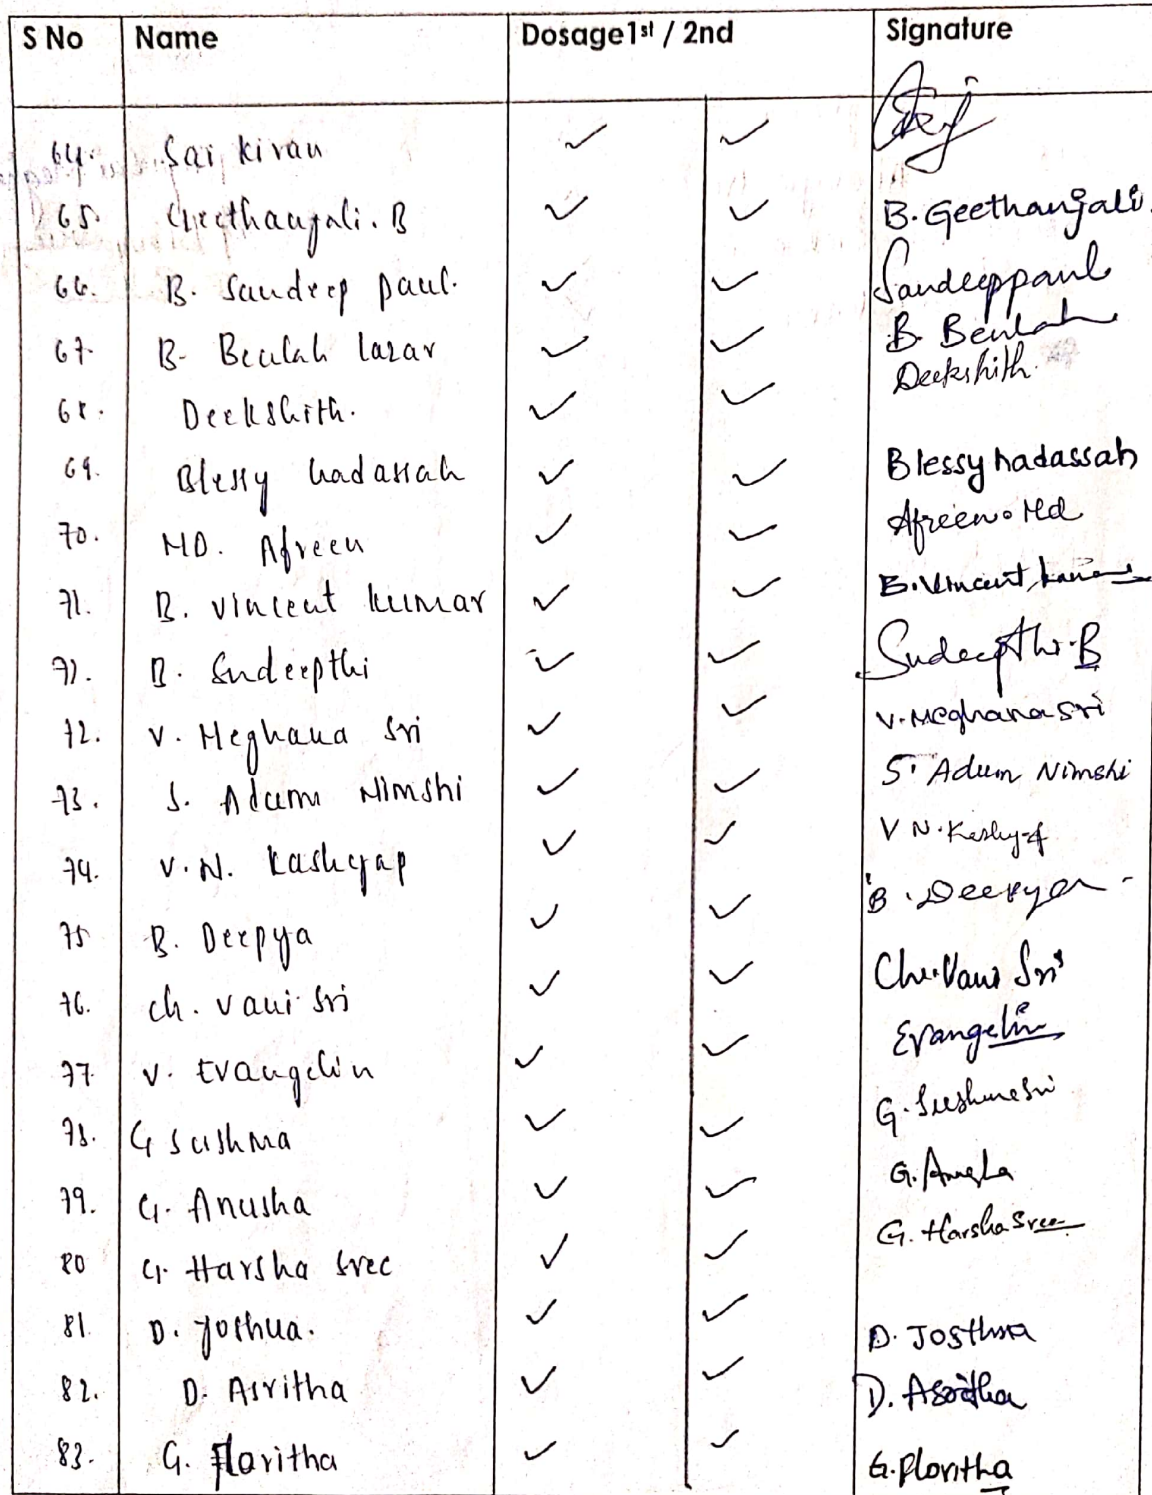 S No Name Dosage 1st / 2nd Signature
64. Sai kiran ✓ ✓
65. Geethanjali. B ✓ ✓ B. Geethanjali.
66. B. Sandeep paul. ✓ ✓ Sandeeppaul
67. B. Beulah lazar ✓ ✓ B. Beulah
68. Deekshith. ✓ ✓ Deekshith.
69. Blessy hadassah ✓ ✓ Blessy hadassah
70. MD. Afreen ✓ ✓ Afreen. Md
71. B. vincent kumar ✓ ✓ B. Vincent kumar
71. B. Sudeepthi ✓ ✓ Sudeepthi. B
72. V. Meghana Sri ✓ ✓ V. Meghana Sri
73. S. Adum Nimshi ✓ ✓ S. Adum Nimshi
74. V. N. Kashyap ✓ ✓ V N. Kashyap
75 B. Deepya ✓ ✓ B. Deepya
76. Ch. Vani Sri ✓ ✓ Ch. Vani Sri
77 V. Evangelin ✓ ✓ Evangelin
78. G Sushma ✓ ✓ G.
79. G. Anusha ✓ ✓ G. Anusha
80 G. Harsha Sree ✓ ✓ G. Harsha Sree
81. D. Joshua. ✓ ✓ D.
82. D. Asritha ✓ ✓ D. Asritha
83. G. ✓ ✓ G.